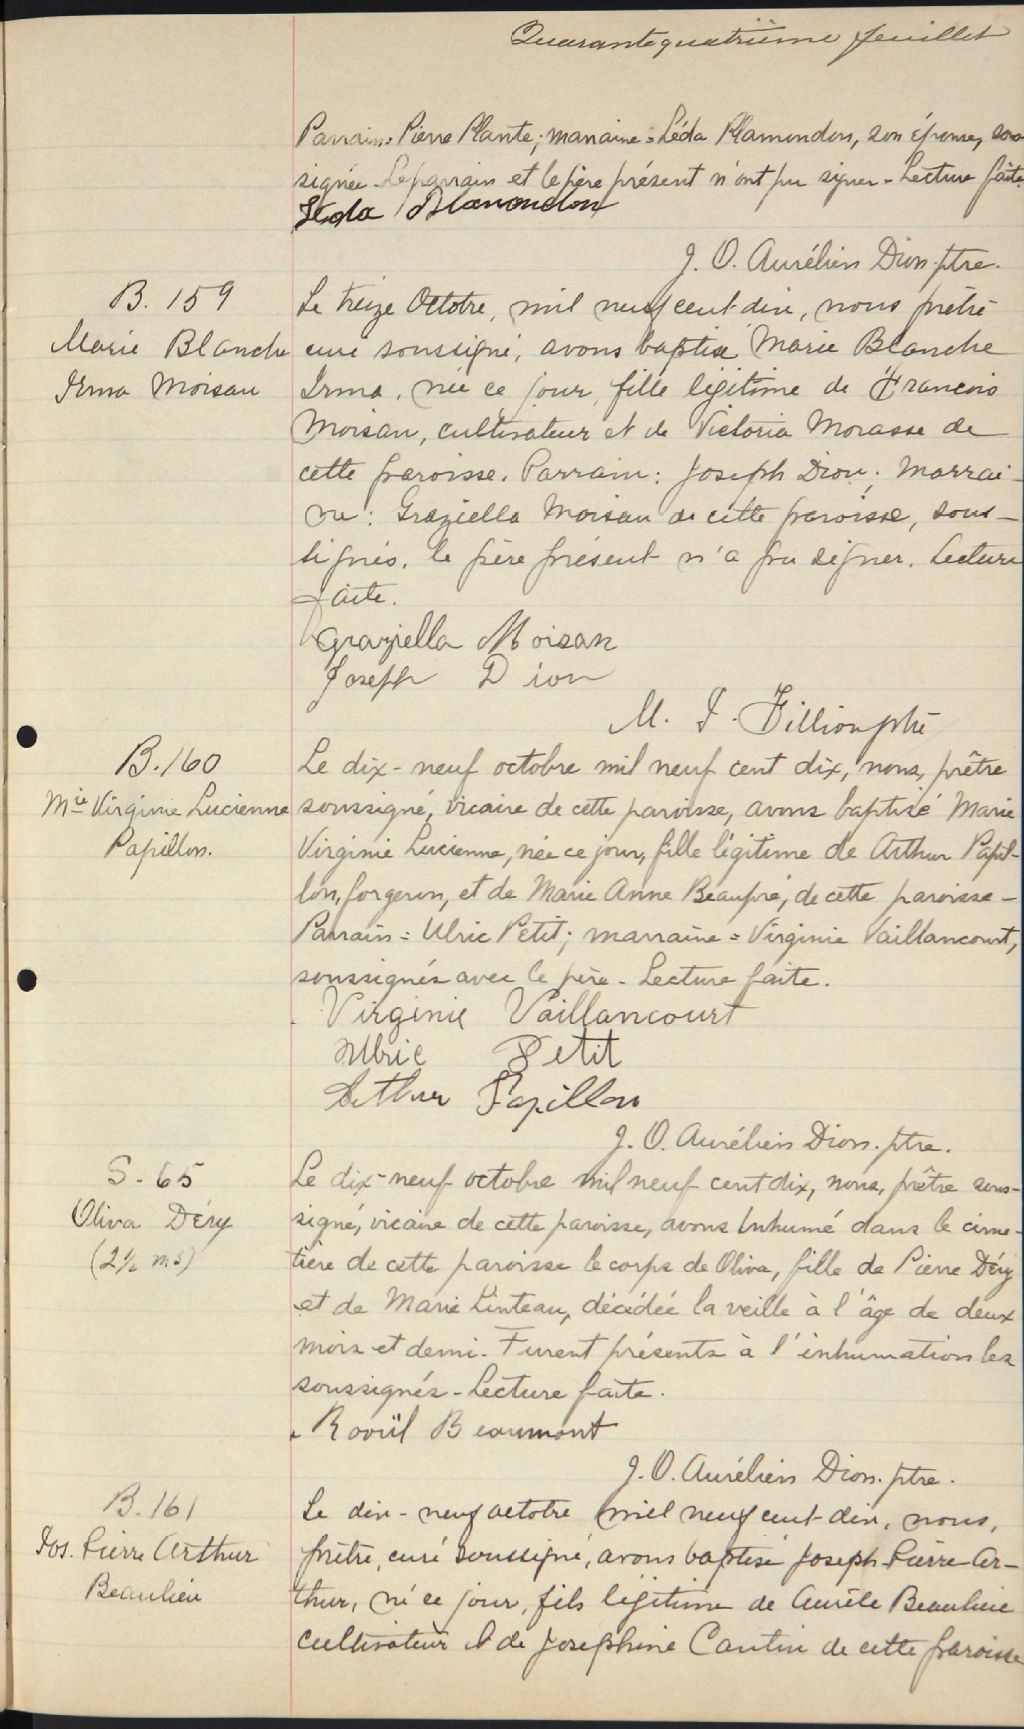 Quarante quatrième feuillet
Parrain = Pierre Plante; marraine = Léda Plamondon, son épouse, sous-
signée. Le parrain et le père présent n'ont pu signer - Lecture faite.
Léda Plamondon
J. O. Aurélien Dion. ptre.
B. 159
Marie Blanche
Irma Moisan
Le treize Octobre, mil neuf cent dix, nous prêtre
curé soussigné, avons baptisé Marie Blanche
Irma, née ce jour, fille légitime de François
Moisan, cultivateur et de Victoria Morasse de
cette paroisse. Parrain: Joseph Dion; Marrai-
ne: Graziella Moisan de cette paroisse, sous-
signés. le père présent n'a pu signer. Lecture
faite.
Graziella Moisan
Joseph Dion
M. J. Fillion ptre
B. 160
Mie Virginie Lucienne
Papillon.
Le dix-neuf octobre mil neuf cent dix, nous, prêtre
soussigné, vicaire de cette paroisse, avons baptisé Marie
Virginie Lucienne, née ce jour, fille légitime de Arthur Papil-
lon, forgeron, et de Marie Anne Beaupré, de cette paroisse -
Parrain = Ulric Petit; marraine = Virginie Vaillancourt,
soussignés avec le père - Lecture faite.
Virginie Vaillancourt
Ulric Petit
Arthur Papillon
J. O. Aurélien Dion. ptre.
S. 65
Oliva Déry
(2½ ms)
Le dix-neuf octobre mil neuf cent dix, nous, prêtre sous-
signé, vicaire de cette paroisse, avons inhumé dans le cime-
tière de cette paroisse le corps de Oliva, fille de Pierre Déry
et de Marie Linteau, décédée la veille à l'âge de deux
mois et demi. Furent présents à l'inhumation les
soussignés - Lecture faite.
Raoül Beaumont
J. O. Aurélien Dion. ptre.
B. 161
Jos. Pierre Arthur
Beaulieu
Le dix-neuf octobre mil neuf cent dix, nous,
prêtre, curé soussigné, avons baptisé Joseph Pierre Ar-
thur, né ce jour, fils légitime de Aurèle Beaulieu
cultivateur et de Joséphine Cantin de cette paroisse